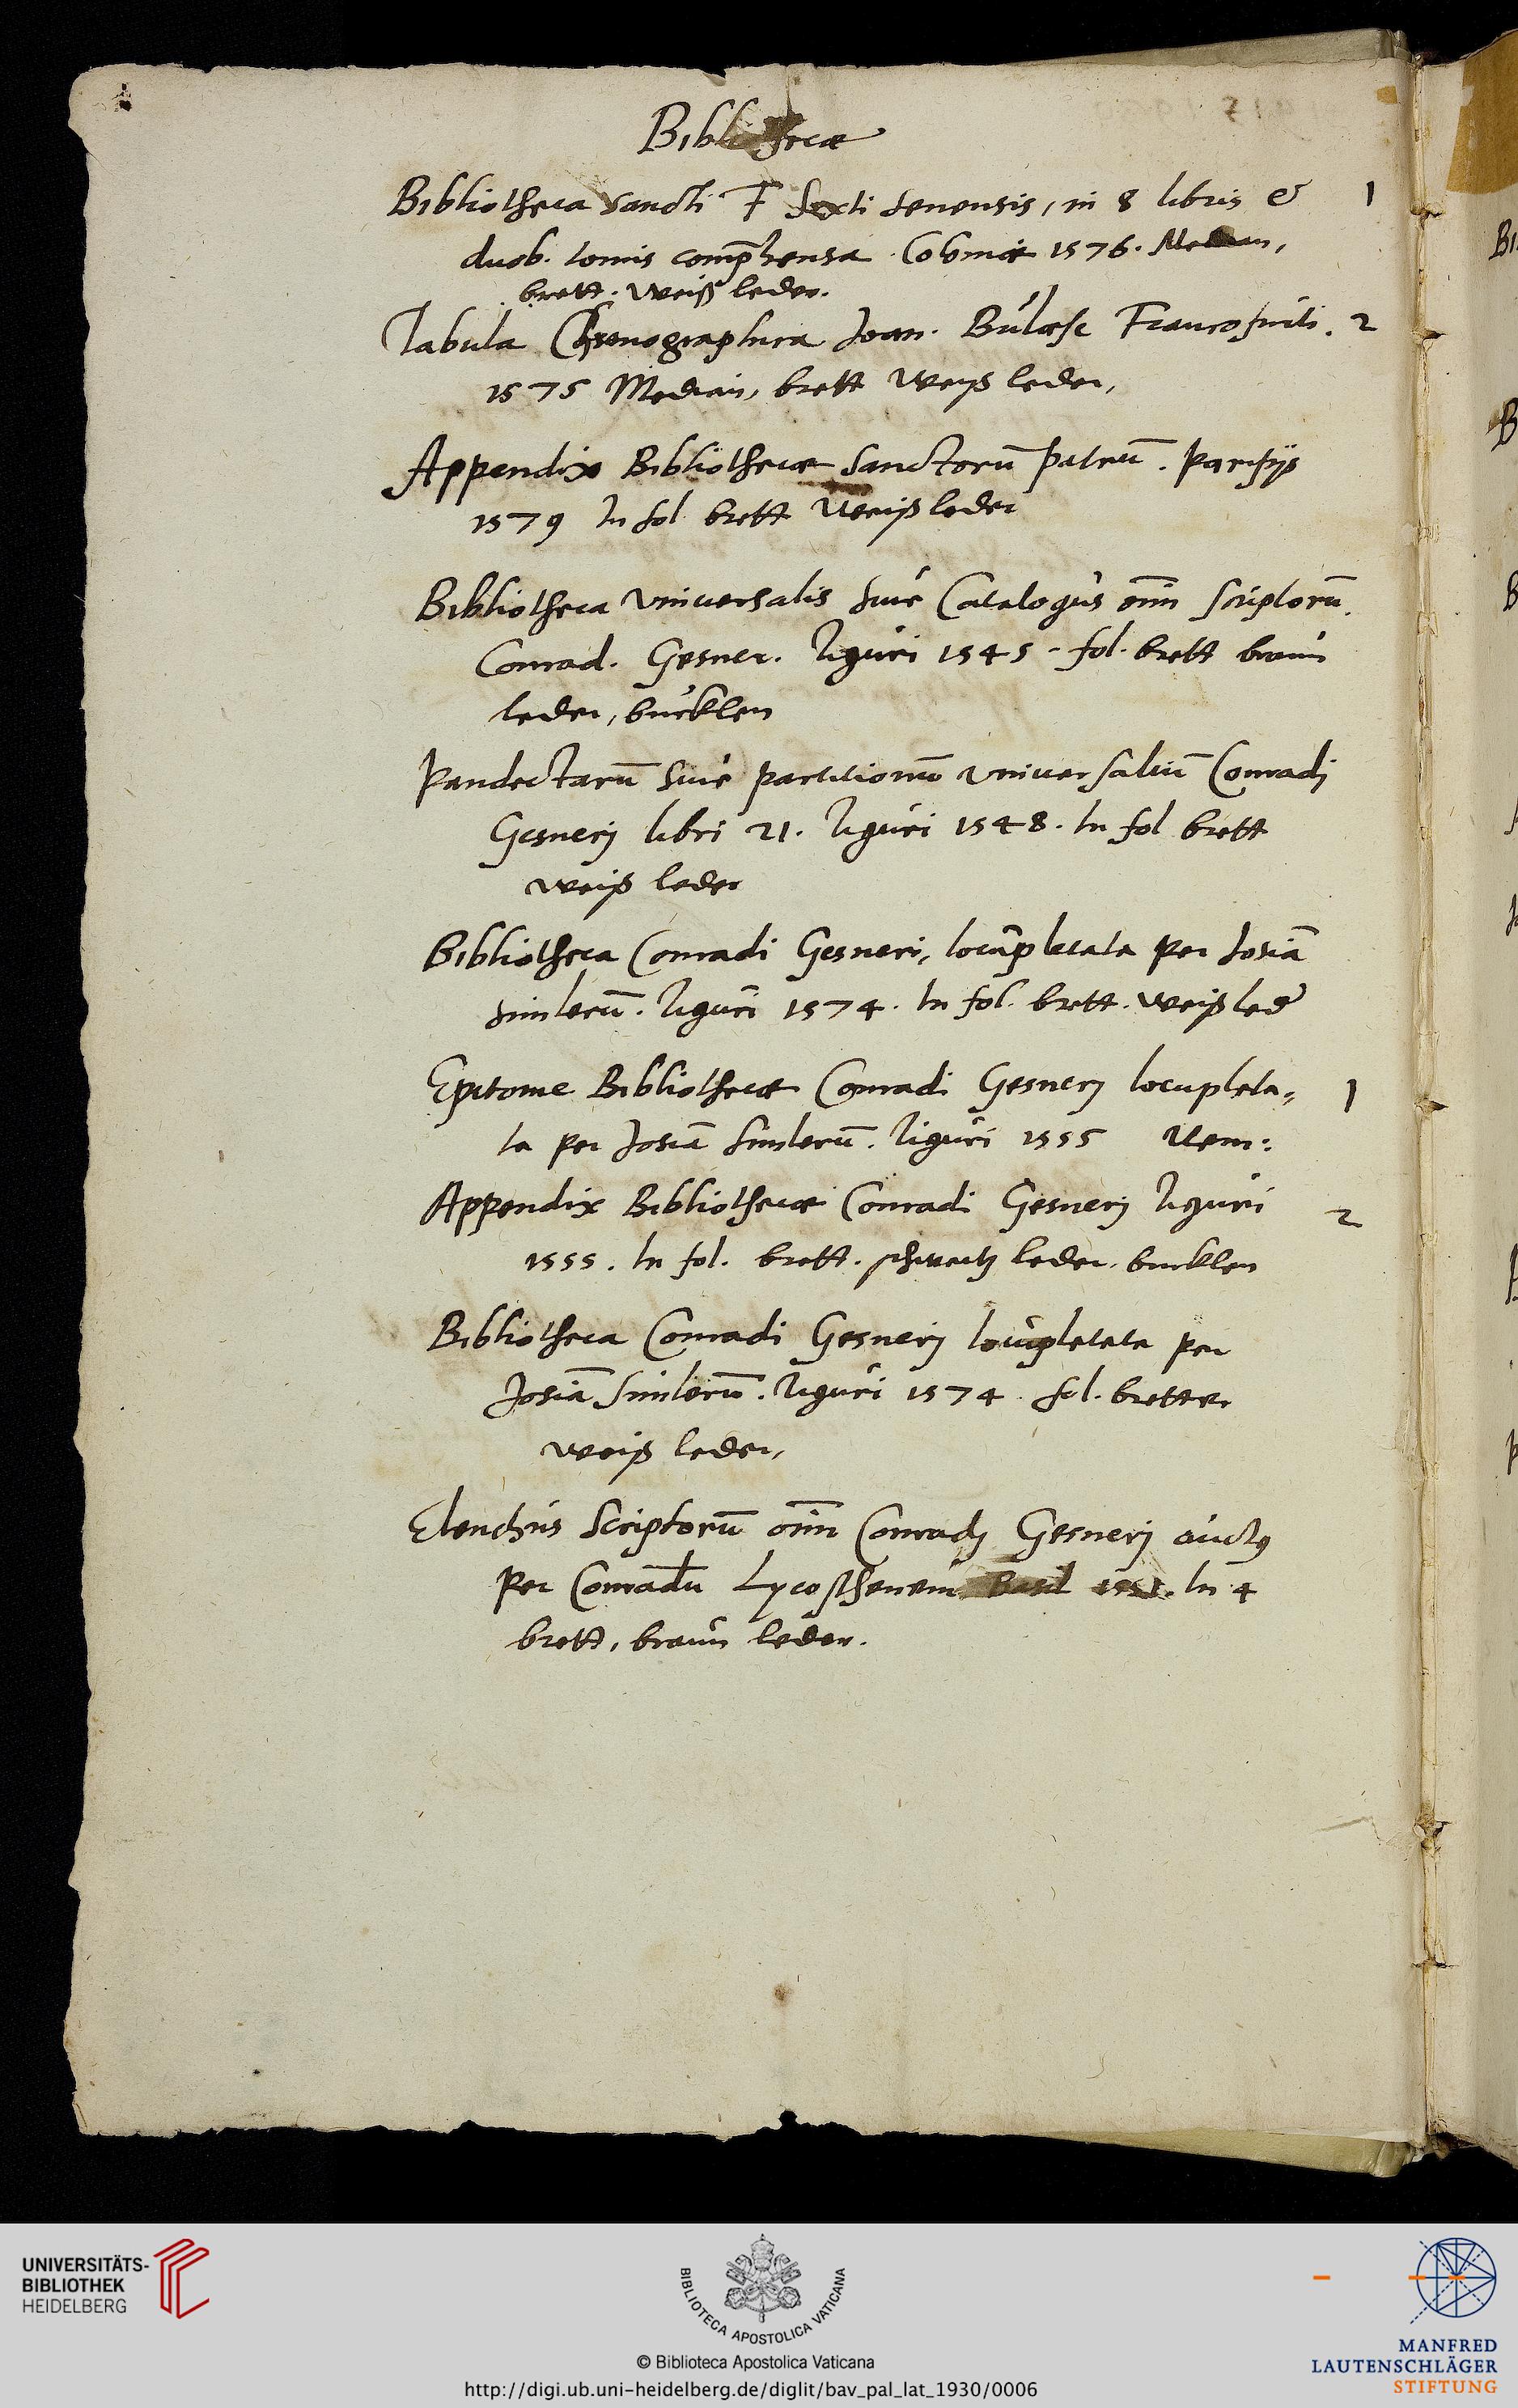 Bibliothecæ
Bibliotheca sancti F Sexti Senensis, in 8 libris & 1
duob. tomis comp̄hensa. Coloniæ 1576. Median,
brett. weiß leder.
Tabula Chronographica Joan. Bulæse Francofurti. 2
1575 Median, brett weiß leder,
Appendix Bibliothecæ sanctorū patrū. Parisijs
1579 In fol brett weiß leder
Bibliotheca vniuersalis siue Catalogus om̄n scriptorū.
Conrad. Gesner. Tiguri 1545. fol. brett braun
leder, bucklen
Pandectarū siue partitionū vniuersaliū Conradj
Gesnerj libri 21. Tiguri 1548. In fol brett
weiß leder
Bibliotheca Conradi Gesneri, locūpletata per Josiā
Simlerū. Tiguri 1574. In fol. brett. weiß led
Epitome Bibliothecæ Conradi Gesnerj locupleta= 1
ta per Josiā Simlerū. Tiguri 1555 Item:
Appendix Bibliothecæ Conradi Gesnerj Tiguri 2
1555. In fol. brett. schwartz leder. bucklen
Bibliotheca Conradi Gesnerj locupletata per
Josiā Simlerū. Tiguri 1574. fol. bretter
weiß leder,
Elenchus scriptorū om̄n Conradj Gesnerj auctꝯ
per Conradū Lycosthenem Basil 1551. In 4
brett, braun leder.
UNIVERSITÄTS-
BIBLIOTHEK
HEIDELBERG
BIBLIOTECA APOSTOLICA VATICANA
© Biblioteca Apostolica Vaticana
http://digi.ub.uni-heidelberg.de/diglit/bav_pal_lat_1930/0006
MANFRED
LAUTENSCHLÄGER
STIFTUNG